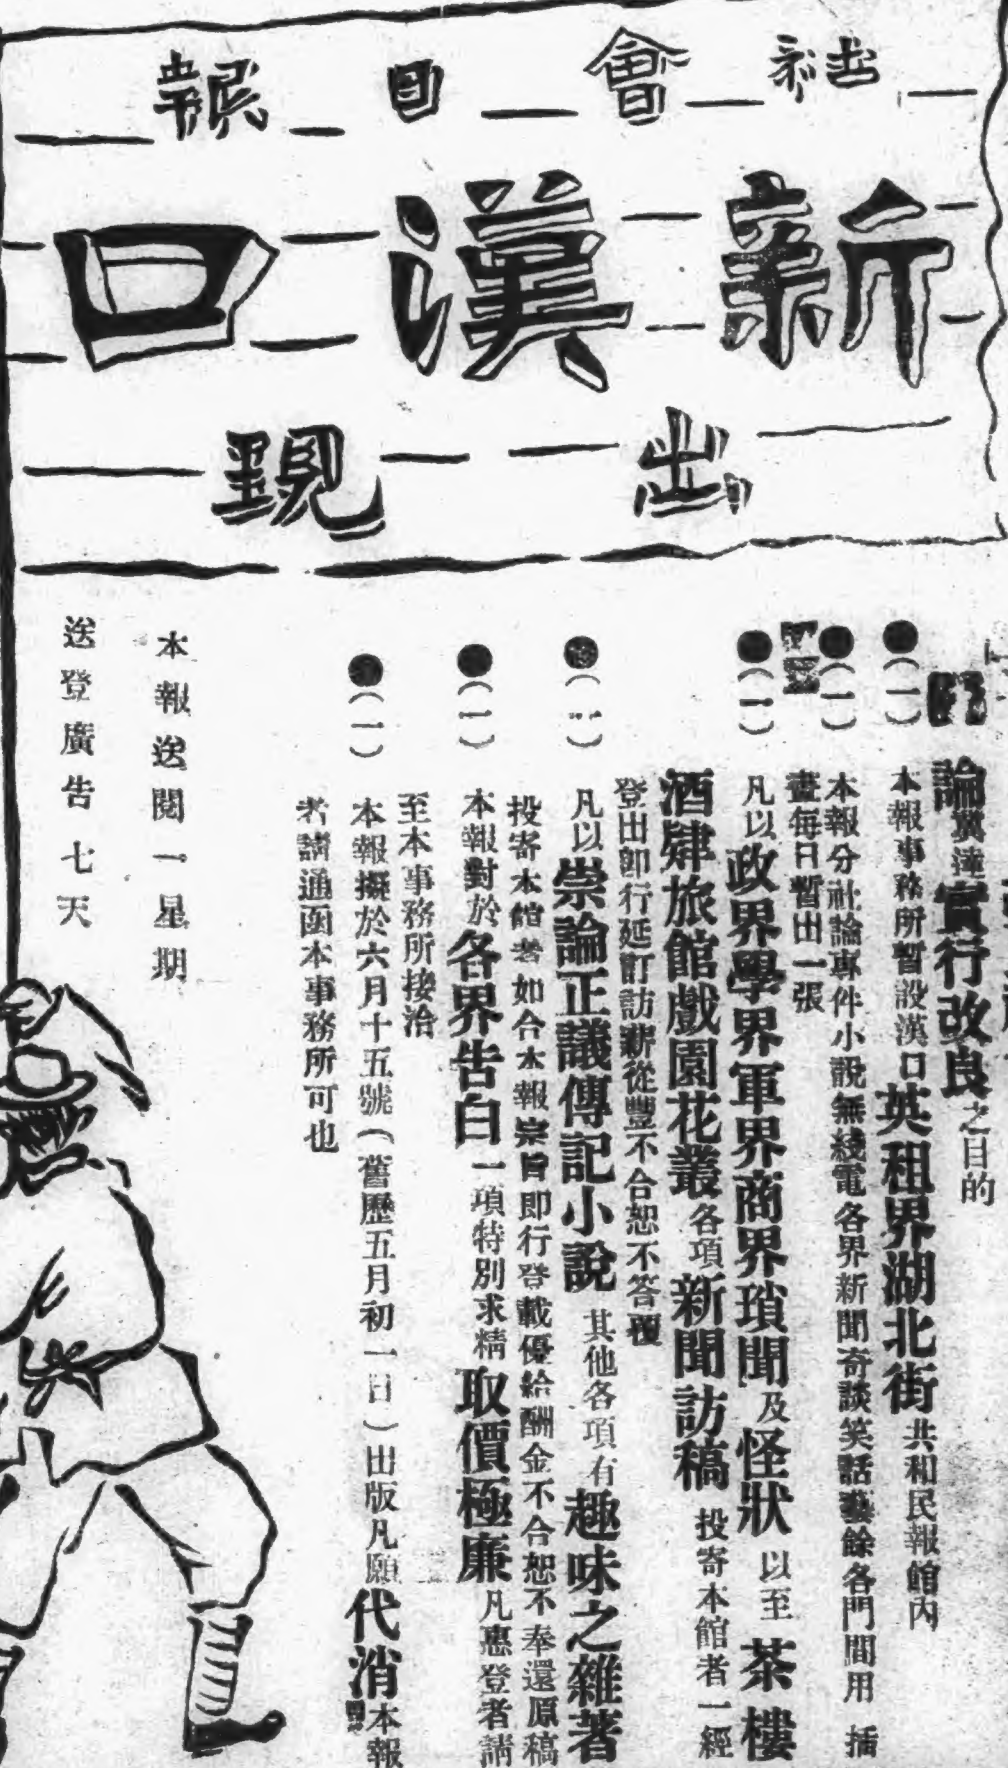 社會日報
新漢口
出現
論冀達實行改良之目的
●(一)本報事務所暫設漢口英租界湖北街共和民報館內
●(一)本報分社論專件小說無綫電各界新聞奇談笑話藝餘各門間用插
畫每日暫出一張
●(一)凡以政界學界軍界商界瑣聞及怪狀以至茶樓
酒肆旅館戲園花叢各項新聞訪稿投寄本館者一經
登出卽行延訂訪薪從豐不合恕不答覆
●(一)凡以崇論正議傳記小說其他各項有趣味之雜著
投寄本館者如合本報宗旨即行登載優給酬金不合恕不奉還原稿
●(一)本報對於各界告白一項特別求精取價極廉凡惠登者請
至本事務所接洽
●(一)本報擬於六月十五號(舊歷五月初一日)出版凡願代消本報
者請通函本事務所可也
本報送閱一星期
送登廣告七天